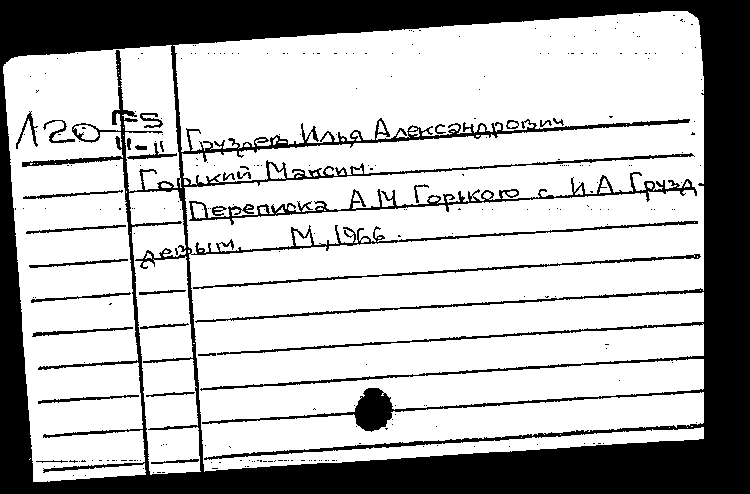 120 Г5/11-11
Груздев, Илья Александрович
Горький, Максим.
Переписка А.М. Горького с И.А. Грузд-
девым. М., 1966.